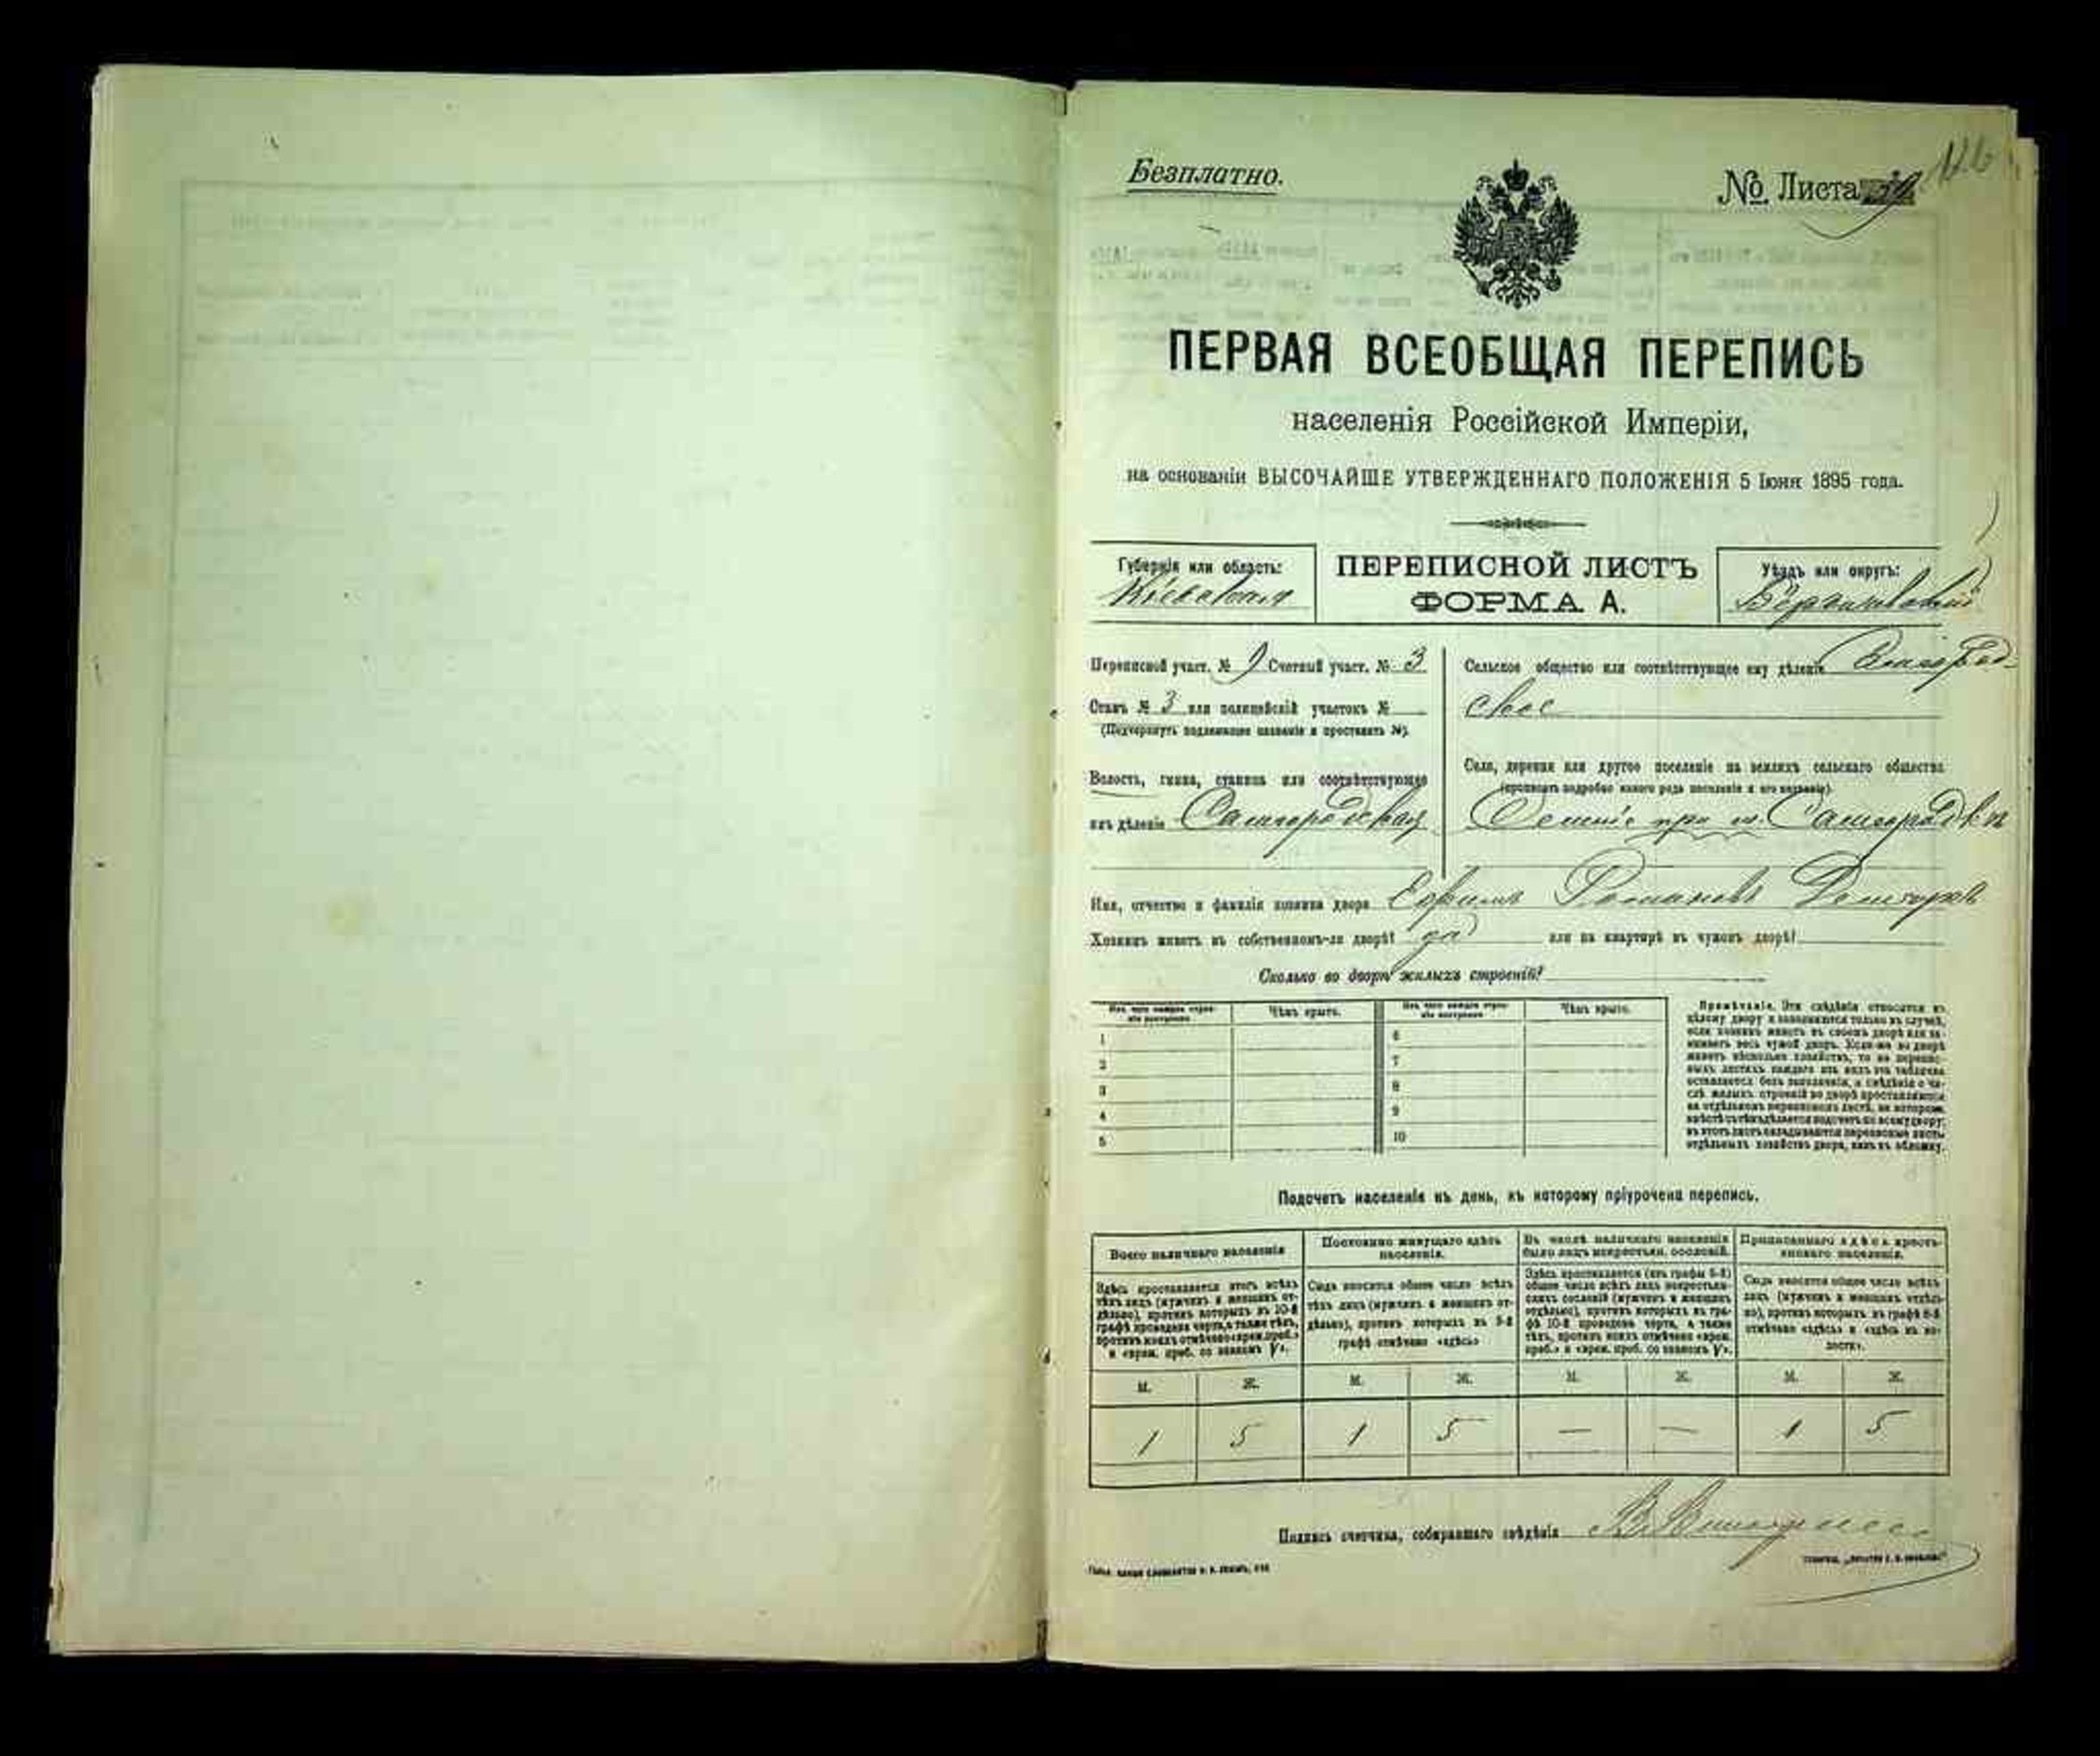 Безплатно.
№ Листа
ПЕРВАЯ ВСЕОБЩАЯ ПЕРЕПИСЬ
населенія Россійской Имперіи,
на основаніи ВЫСОЧАЙШЕ УТВЕРЖДЕННАГО ПОЛОЖЕНІЯ 5 Іюня 1895 года.
Губернія или область:
Кіевская
ПЕРЕПИСНОЙ ЛИСТЪ
ФОРМА А.
Уѣздъ или округъ:
Бердичевскій
Переписной участ. № 9 Счетный участ. № 3
Станъ № 3 или полицейскій участокъ №
(Подчеркнуть подлежащее названіе и проставить №).
Волость, гмина, станица или соотвѣтствующее
имъ дѣленіе Самгородская
Сельское общество или соотвѣтствующее ему дѣленіе Самгород-
ское
Село, деревня или другое поселеніе на земляхъ сельскаго общества
(прописать подробно какого рода поселеніе и его названіе).
при м. Самгородкѣ
Имя, отчество и фамилія хозяина двора Ефимъ Романовъ
Хозяинъ живетъ въ собственномъ-ли дворѣ? да или на квартирѣ въ чужомъ дворѣ?
Сколько во дворѣ жилыхъ строеній?
Изъ чего каждое строе-
ніе построено
Чѣмъ крыто.
Изъ чего каждое строе-
ніе построено
Чѣмъ крыто.
1
2
3
4
5
6
7
8
9
10
Примѣчаніе. Эти свѣдѣнія относятся къ
цѣлому двору и заполняются только въ случаѣ,
если хозяинъ живетъ въ своемъ дворѣ или за-
нимаетъ весь чужой дворъ. Если-же во дворѣ
живетъ нѣсколько хозяйствъ, то на перепис-
ныхъ листахъ каждаго изъ нихъ эта табличка
оставляется безъ заполненія, а свѣдѣнія о чи-
слѣ жилыхъ строеній во дворѣ проставляются
на отдѣльномъ переписномъ листѣ, на которомъ
вмѣстѣ съ тѣмъ дѣлается подсчетъ по всему двору;
въ этотъ листъ вкладываются переписные листы
отдѣльныхъ хозяйствъ двора, какъ въ обложку.
Подсчетъ населенія въ день, къ которому пріурочена перепись.
Всего наличнаго населенія
Здѣсь проставляется итогъ всѣхъ
тѣхъ лицъ (мужчинъ и женщинъ от-
дѣльно), противъ которыхъ въ 10-й
графѣ проведена черта, а также тѣхъ,
противъ коихъ отмѣчено «врем. преб.»
и «врем. преб. со знакомъ V».
Постоянно живущаго здѣсь
населенія.
Сюда вносится общее число всѣхъ
тѣхъ лицъ (мужчинъ и женщинъ от-
дѣльно), противъ которыхъ въ 9-й
графѣ отмѣчено «здѣсь»
Въ числѣ наличнаго населенія
было лицъ некрестьян. сословій.
Здѣсь проставляется (изъ графы 5-й)
общее число всѣхъ лицъ некрестьян-
скихъ сословій (мужчинъ и женщинъ
отдѣльно), противъ которыхъ въ гра-
фѣ 10-й проведена черта, а также
тѣхъ, противъ коихъ отмѣчено «врем.
преб.» и «врем. преб. со знакомъ V».
Приписаннаго здѣсь кресть-
янскаго населенія.
Сюда вносится общее число всѣхъ
лицъ (мужчинъ и женщинъ отдѣль-
но), противъ которыхъ въ графѣ 8-й
отмѣчено «здѣсь» и «здѣсь въ во-
лости».
М. Ж. М. Ж. М. Ж. М. Ж.
1 5 1 5 — — 1 5
Подпись счетчика, собиравшаго свѣдѣнія